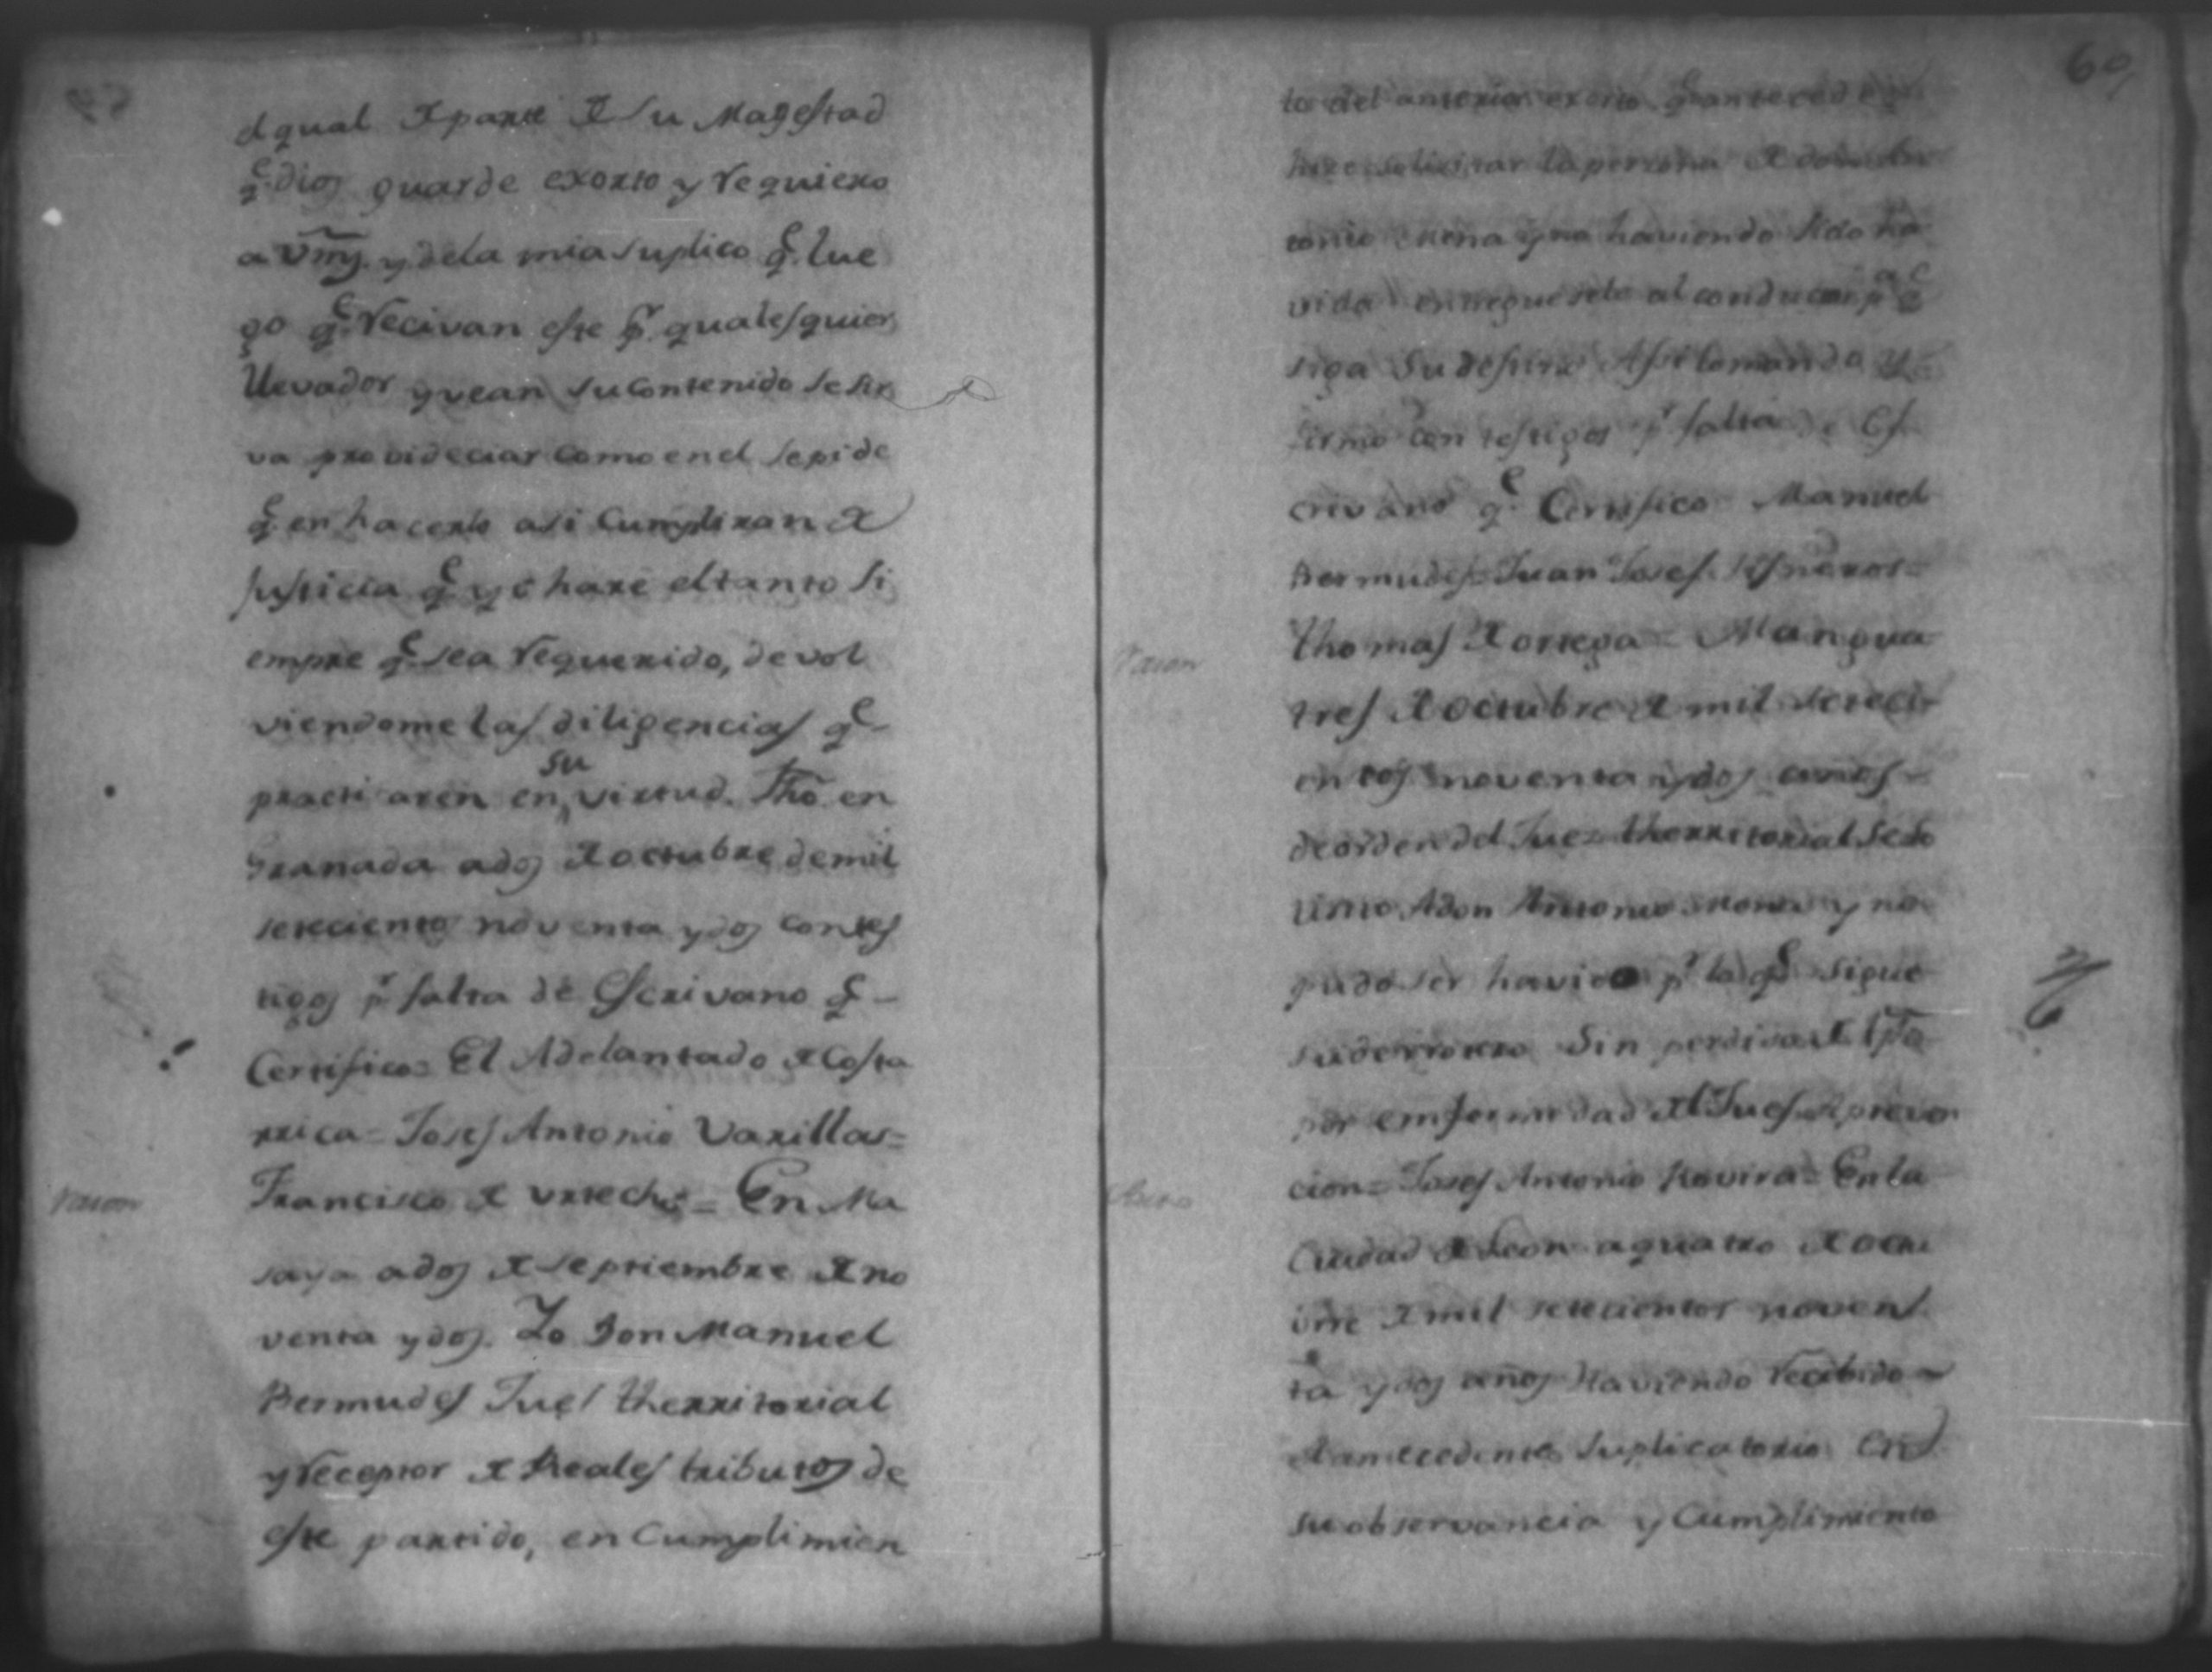 el qual de parte de Su Magestad
q.e dios guarde exorto y requiero
a Vms. y dela mia suplico q.e lue
go q.e recivan este p.r qualesquier
llevador y vean su contenido se sir
va provideciar como en el se pide
q.e en hacerlo asi Cumpliran de
justicia q.e yo hare el tanto si
empre q.e sea requerido, devol
viendome las diligencias q.e
practicaren en su virtud. Fho en
Granada a dos de octubre de mil
setecientos noventa y dos con tes
tigos p.r falta de Escrivano q.e
Certifico = El Adelantado de Costa
rrica = Josef Antonio Varillas =
Razon
Francisco de Urtecho = En Ma
saya a dos de septiembre de no
venta y dos. Yo Don Manuel
Bermudes Jues therritorial
y receptor de Reales tributos de
este partido, en Cumplimien
60
to del anterior exorto q.e antecede
hize solicitar la persona de don An
tonio Mena y no haviendo sido ha
vido entreguesele al conductor p.a q.e
siga su destino Assi lo mando y
firmo con testigos p.r falta de Es
crivano q.e Certifico Manuel
Bermudes = Juan Josef Sisneros =
Razon
Thomas de ortega = Managua
tres de octubre de mil seteci
entos noventa y dos años
de orden del Juez therritorial se so
licito A don Antonio Mena y no
pudo ser havido p.r lo q.e sigue
su derrotero Sin perdida de tpo
por emfermedad del Jues de preven
cion = Josef Antonio Rovira = En la
Ciudad de Leon a quatro de octu
bre de mil setecientos noven
ta y dos años Haviendo recibido
el antecedente Suplicatorio En
su observancia y Cumplimiento